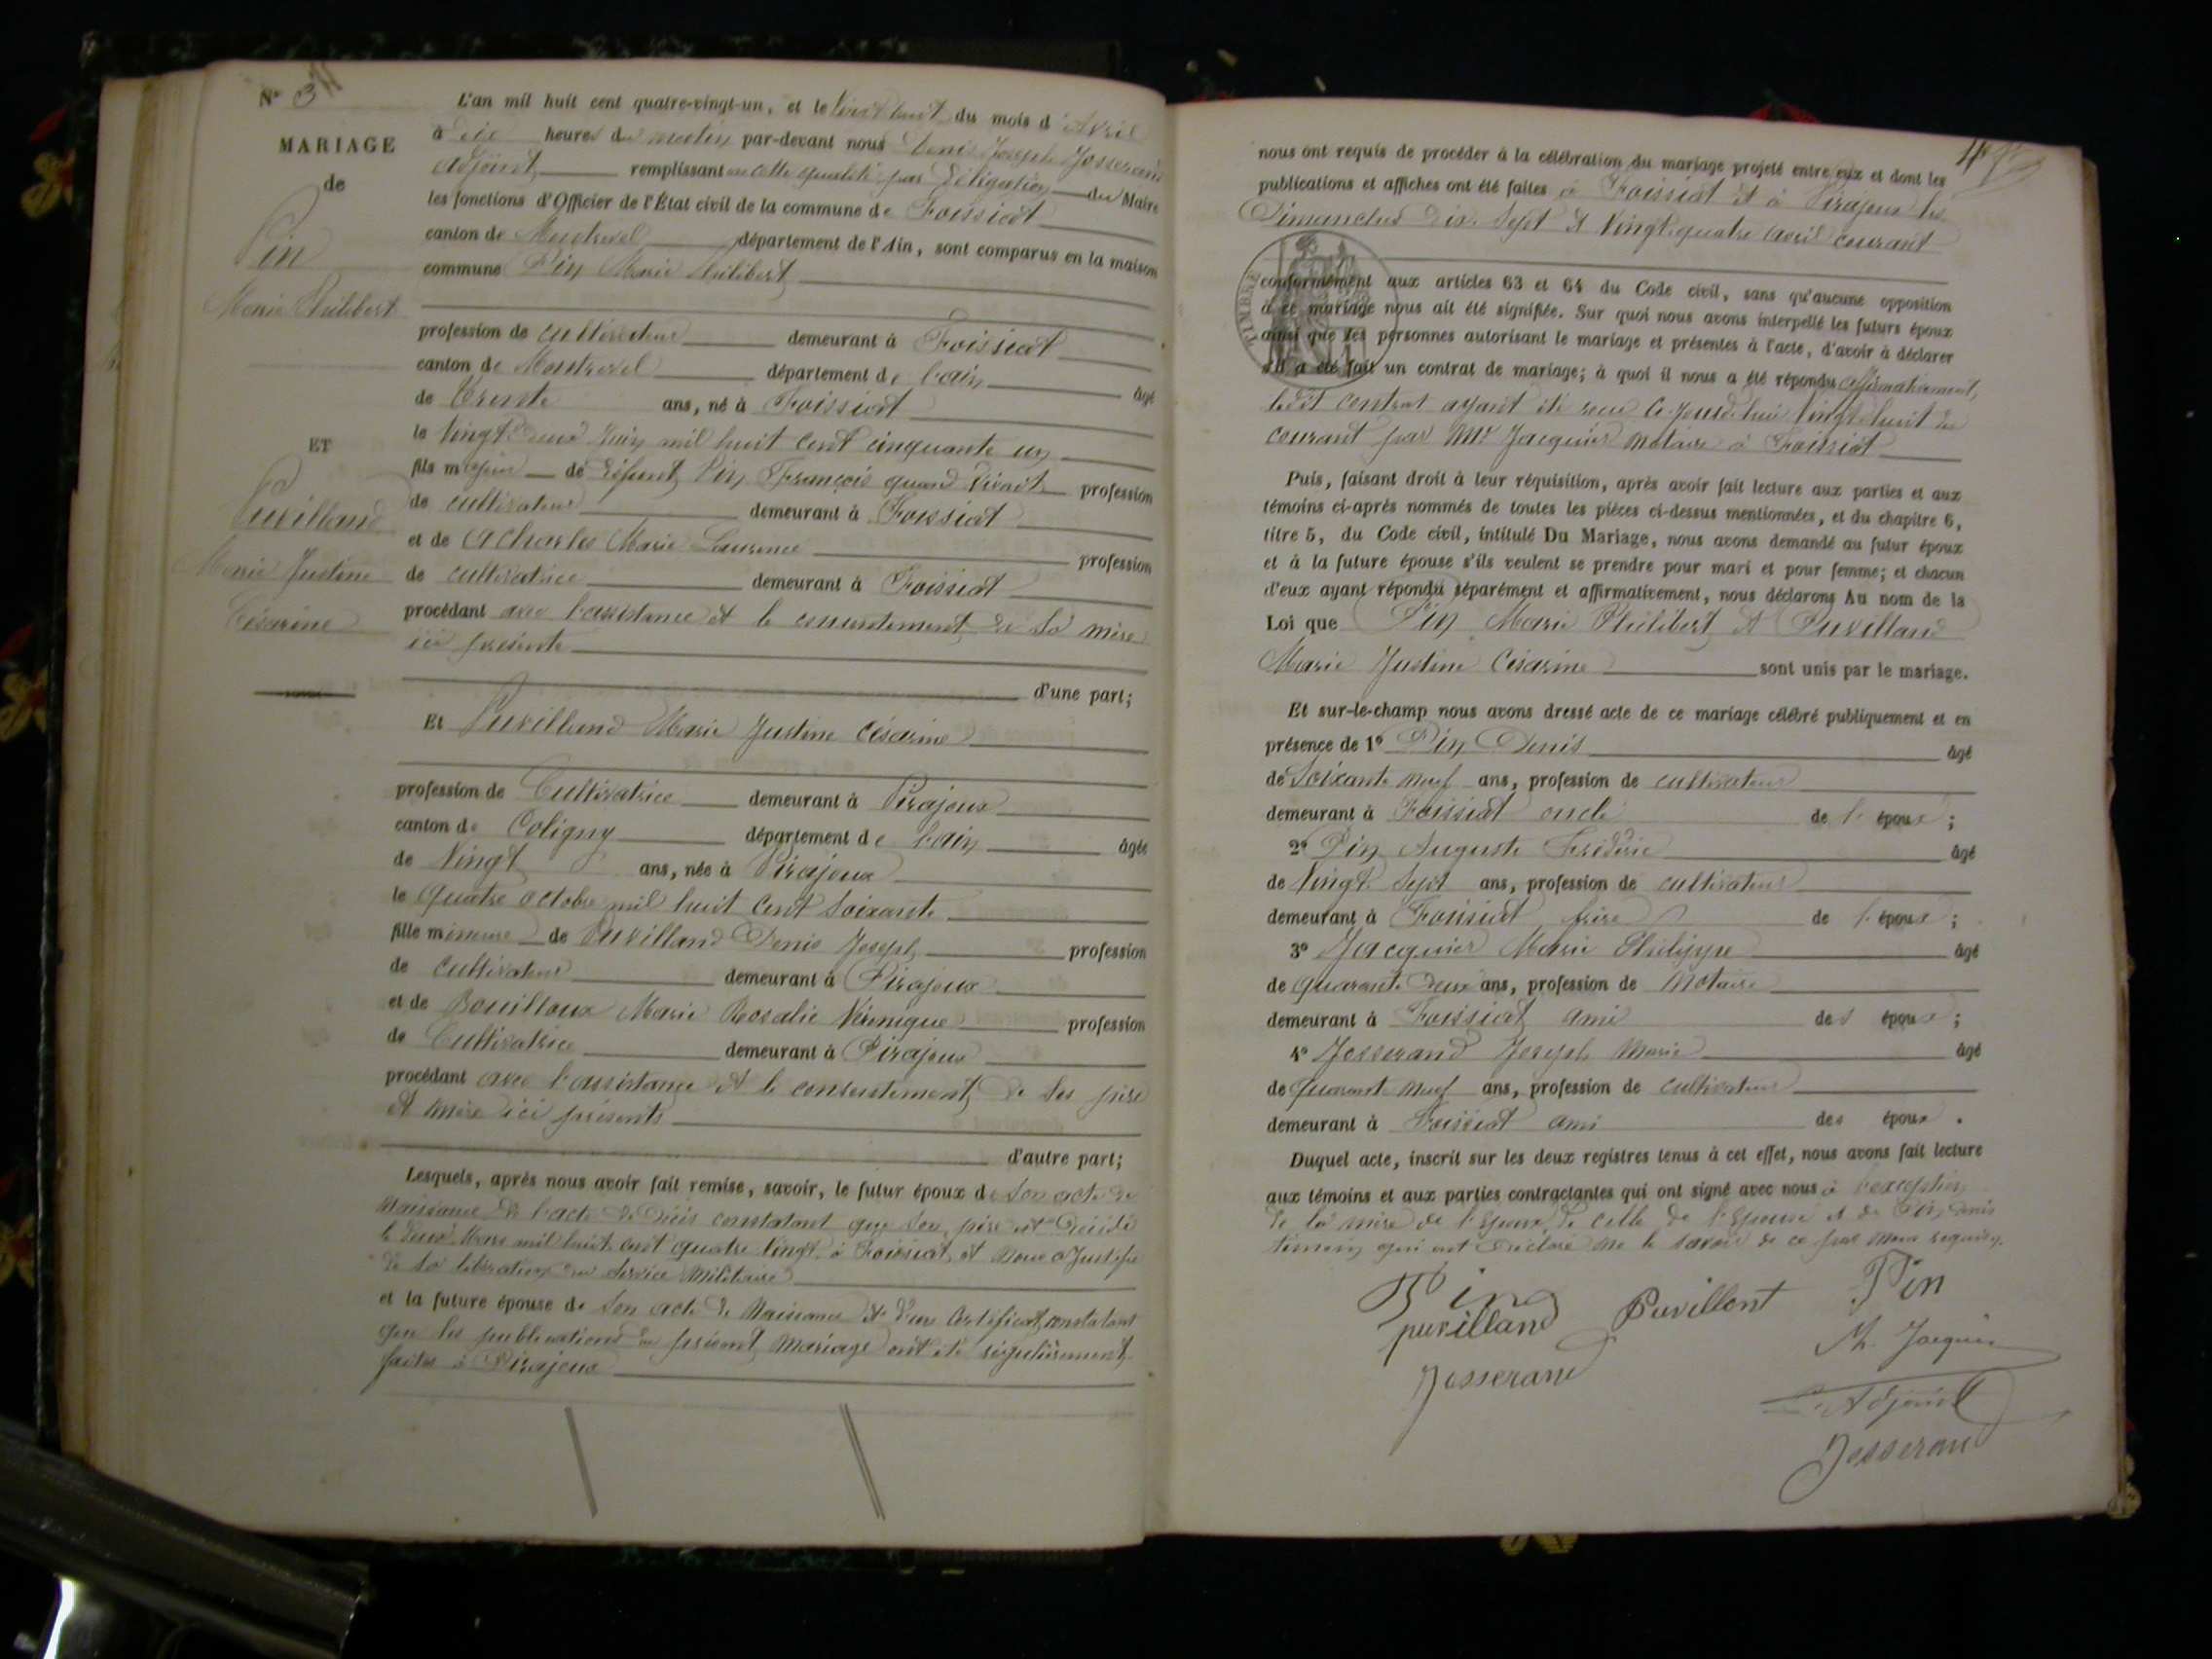 N° 31
MARIAGE
de
Pin
Marie Philibert
ET
Puvilland
Marie Justine
Césarine
L'an mil huit cent quatre-vingt-un, et le vingt huit du mois d'Avril
à dix heures du matin par-devant nous Denis Joseph Josserand
Adjoint remplissant en cette qualité par délégation du Maire
les fonctions d'Officier de l'État civil de la commune de Foissiat
canton de Montrevel département de l'Ain, sont comparus en la maison
commune Pin Marie Philibert
profession de cultivateur demeurant à Foissiat
canton de Montrevel département de l'ain âgé
de Trente ans, né à Foissiat
le vingt deux Juin mil huit cent cinquante un
fils majeur de défunt Pin François quand vivait profession
de cultivateur demeurant à Foissiat
et de Acharles Marie Laurence profession
de cultivatrice demeurant à Foissiat
procédant avec l'assistance et le consentement de sa mère
ici présente
d'une part;
Et Puvilland Marie Justine Césarine
profession de Cultivatrice demeurant à Pirajoux
canton de Coligny département de l'ain âgée
de Vingt ans, née à Pirajoux
le quatre octobre mil huit cent soixante
fille mineure de Puvilland Denis Joseph profession
de cultivateur demeurant à Pirajoux
et de Bouilloux Marie Rosalie Véronique profession
de Cultivatrice demeurant à Pirajoux
procédant avec l'assistance et le consentement de ses père
et mère ici présents
d'autre part;
Lesquels, après nous avoir fait remise, savoir, le futur époux de son acte de
naissance de l'acte de décès constatant que son père est décédé
le deux Mars mil huit cent quatre vingt à Foissiat et nous a justifié
de sa libération du service militaire
et la future épouse de son acte de naissance et d'un certificat constatant
que les publications du présent mariage ont été régulièrement
faites à Pirajoux
nous ont requis de procéder à la célébration du mariage projeté entre eux et dont les
publications et affiches ont été faites à Foissiat et à Pirajoux les
Dimanches dix-sept et vingt quatre avril courant
TIMBRE
conformément aux articles 63 et 64 du Code civil, sans qu'aucune opposition
à ce mariage nous ait été signifiée. Sur quoi nous avons interpellé les futurs époux
ainsi que les personnes autorisant le mariage et présentes à l'acte, d'avoir à déclarer
s'il a été fait un contrat de mariage; à quoi il nous a été répondu affirmativement,
ledit contrat ayant été reçu ce jourd'hui vingt-huit du
courant par Me Jacquier notaire à Foissiat
Puis, faisant droit à leur réquisition, après avoir fait lecture aux parties et aux
témoins ci-après nommés de toutes les pièces ci-dessus mentionnées, et du chapitre 6,
titre 5, du Code civil, intitulé Du Mariage, nous avons demandé au futur époux
et à la future épouse s'ils veulent se prendre pour mari et pour femme; et chacun
d'eux ayant répondu séparément et affirmativement, nous déclarons Au nom de la
Loi que Pin Marie Philibert et Puvilland
Marie Justine Césarine sont unis par le mariage.
Et sur-le-champ nous avons dressé acte de ce mariage célébré publiquement et en
présence de 1° Pin Denis âgé
de soixante neuf ans, profession de cultivateur
demeurant à Foissiat oncle de l'époux ;
2° Pin Auguste Frédéric âgé
de Vingt sept ans, profession de cultivateur
demeurant à Foissiat frère de l'époux ;
3° Jacquier Marie Philippe âgé
de quarante deux ans, profession de Notaire
demeurant à Foissiat ami des époux ;
4° Josserand Joseph Marie âgé
de quarante neuf ans, profession de cultivateur
demeurant à Foissiat ami des époux .
Duquel acte, inscrit sur les deux registres tenus à cet effet, nous avons fait lecture
aux témoins et aux parties contractantes qui ont signé avec nous à l'exception
de la mère de l'époux, de celle de l'épouse et de Pin Denis
témoin qui ont déclaré ne le savoir de ce par nous requis.
Pin Puvillont Pin
puvilland
Ph. Jacquier
Josserand
L'Adjoint
Josserand